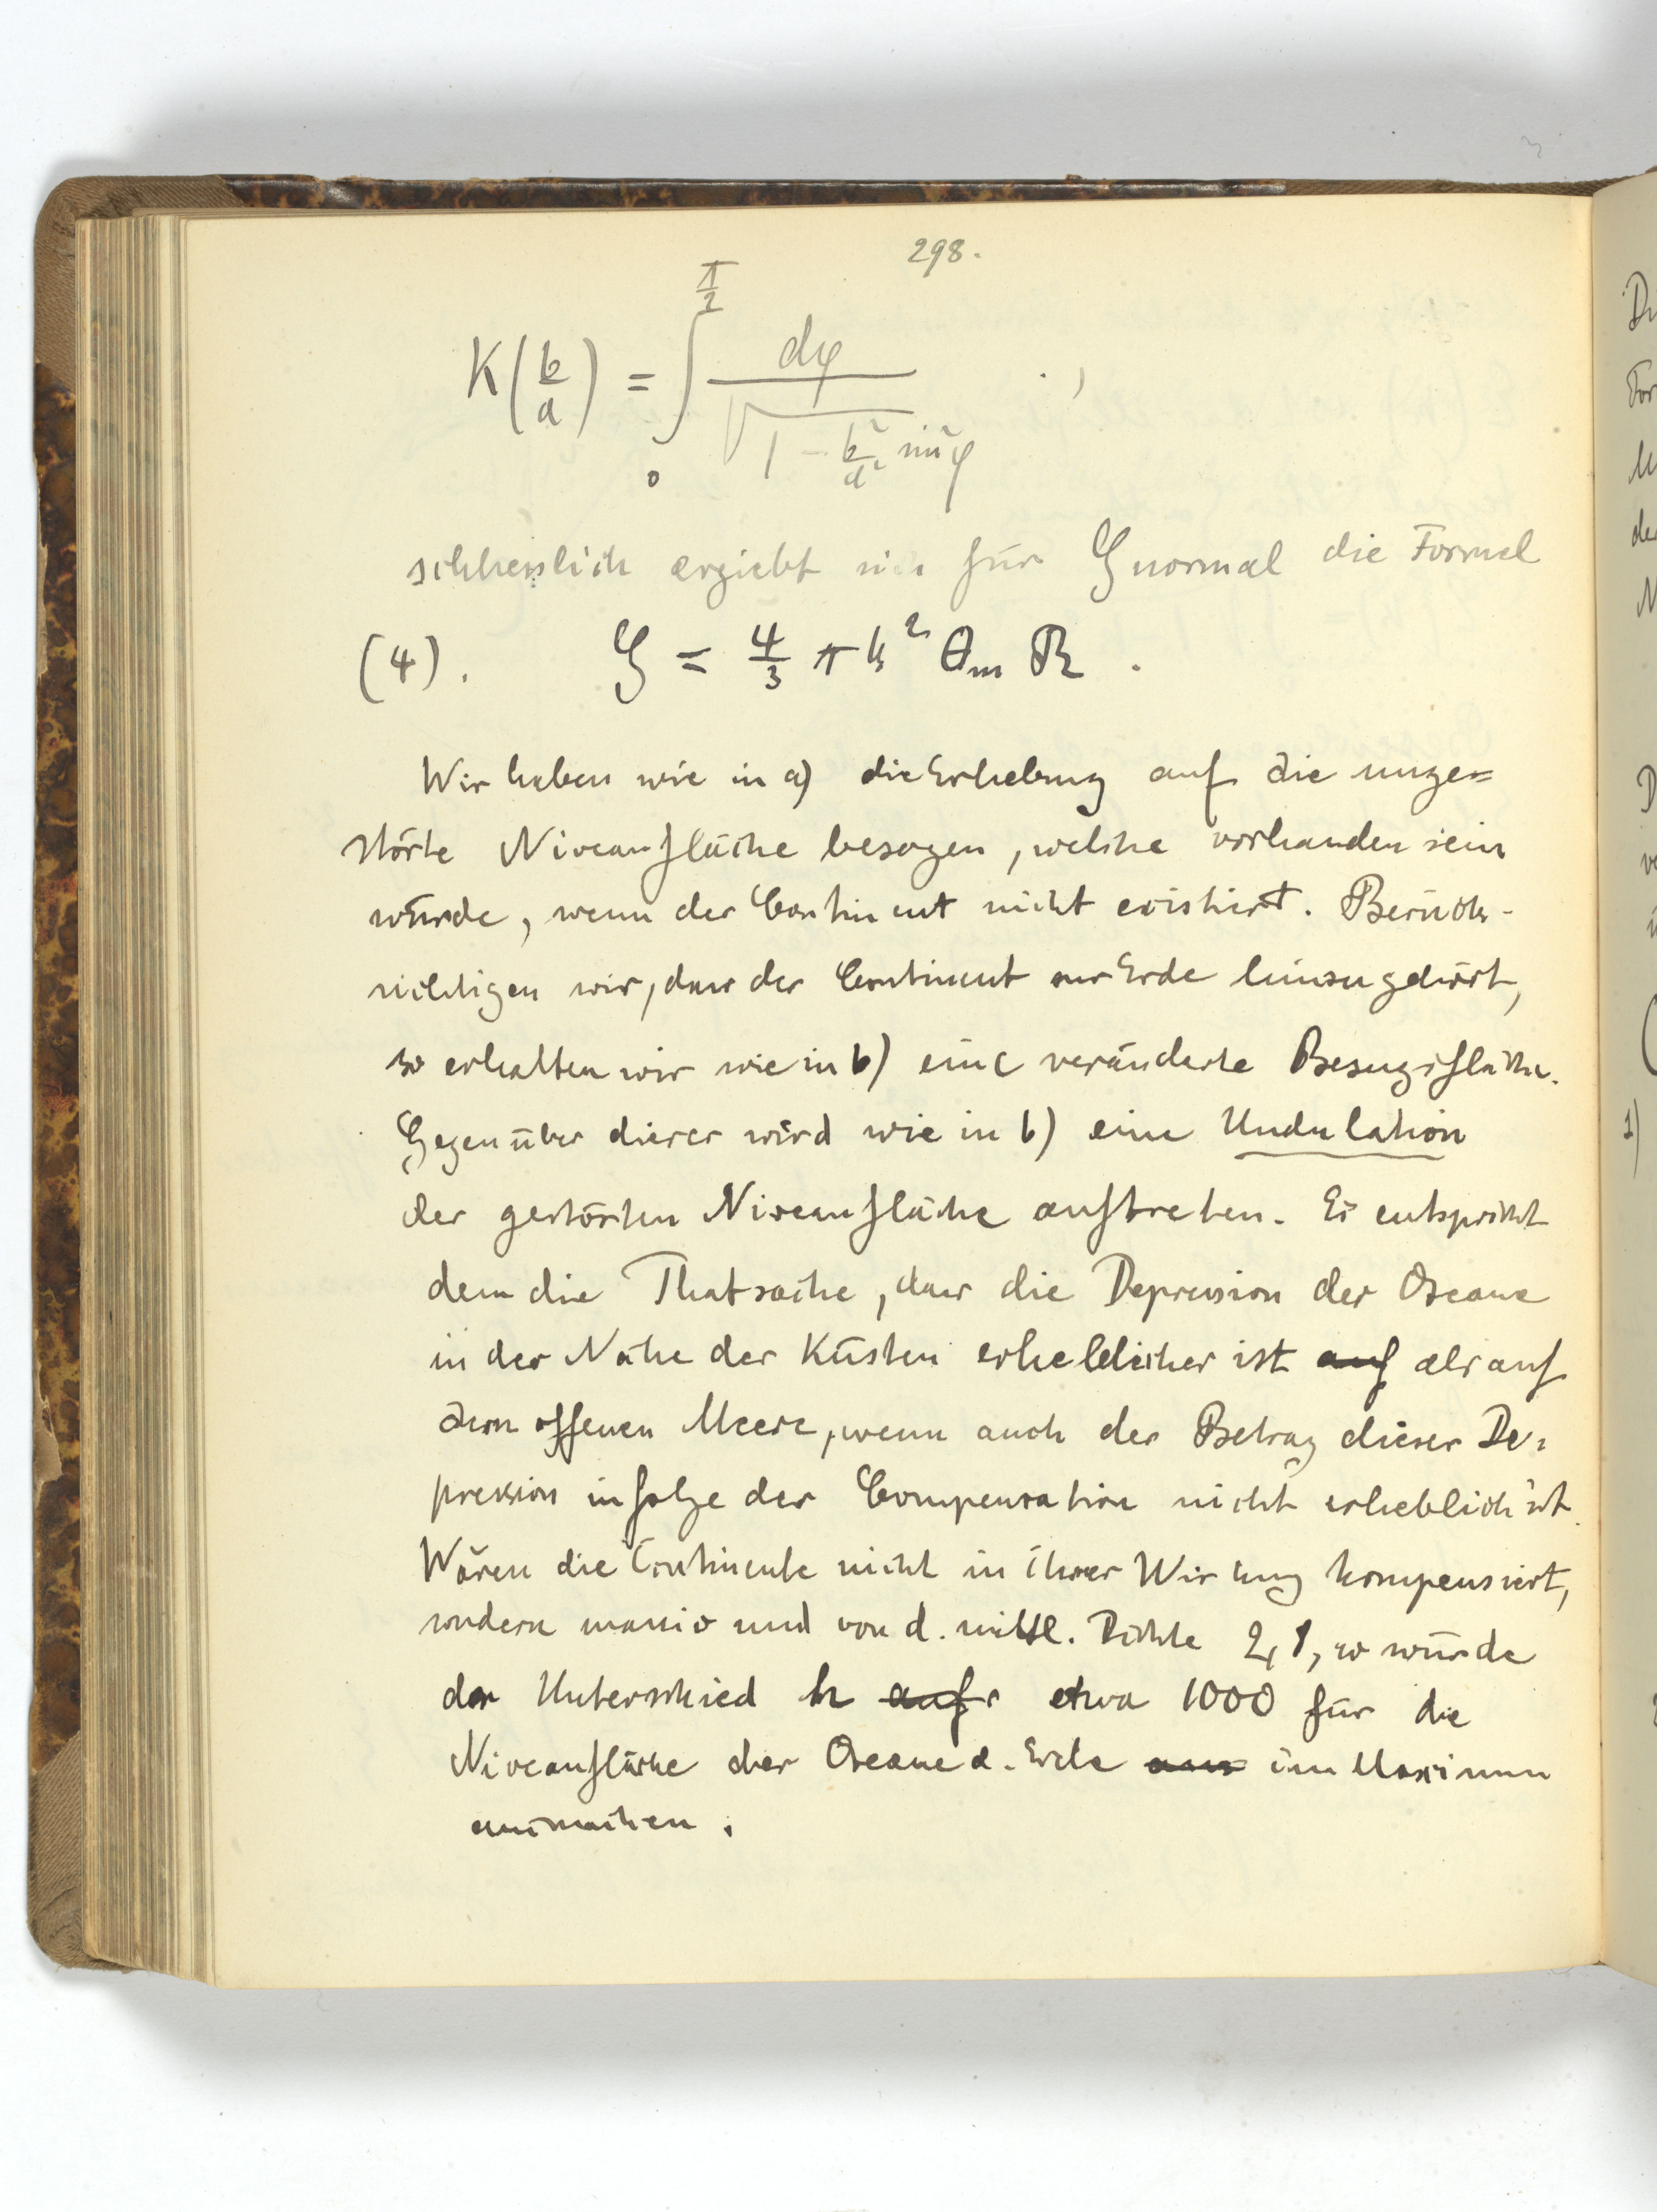 298.
K(b/a) = ∫₀^{π/2} dφ / √(1 - b²/a² sin²φ) ,
schliesslich ergiebt sich für G normal die Formel
(4). G = 4/3 π k² θm R .
Wir haben wie in a) die Erhebung auf die unge=
störte Niveaufläche bezogen, welche vorhanden sein
würde, wenn der Continent nicht existirt. Berück-
sichtigen wir, dass der Continent zur Erde hinzugehört,
so erhalten wir wie in b) eine veränderte Bezugsfläche.
Gegenüber dieser wird wie in b) eine Undulation
der gestörten Niveaufläche auftreten. Es entspricht
dem die Thatsache, dass die Depression der Oceane
in der Nähe der Küsten erheblicher ist auf als auf
dem offenen Meere, wenn auch der Betrag dieser De=
pression infolge der Compensation nicht erheblich ist.
Wären die Continente nicht in ihrer Wirkung kompensiert,
sondern massiv und von d. mittl. Dichte 2,8, so würde
der Unterschied h auf etwa 1000 für die
Niveaufläche der Oceane d. Erde aus im Maximum
ausmachen.